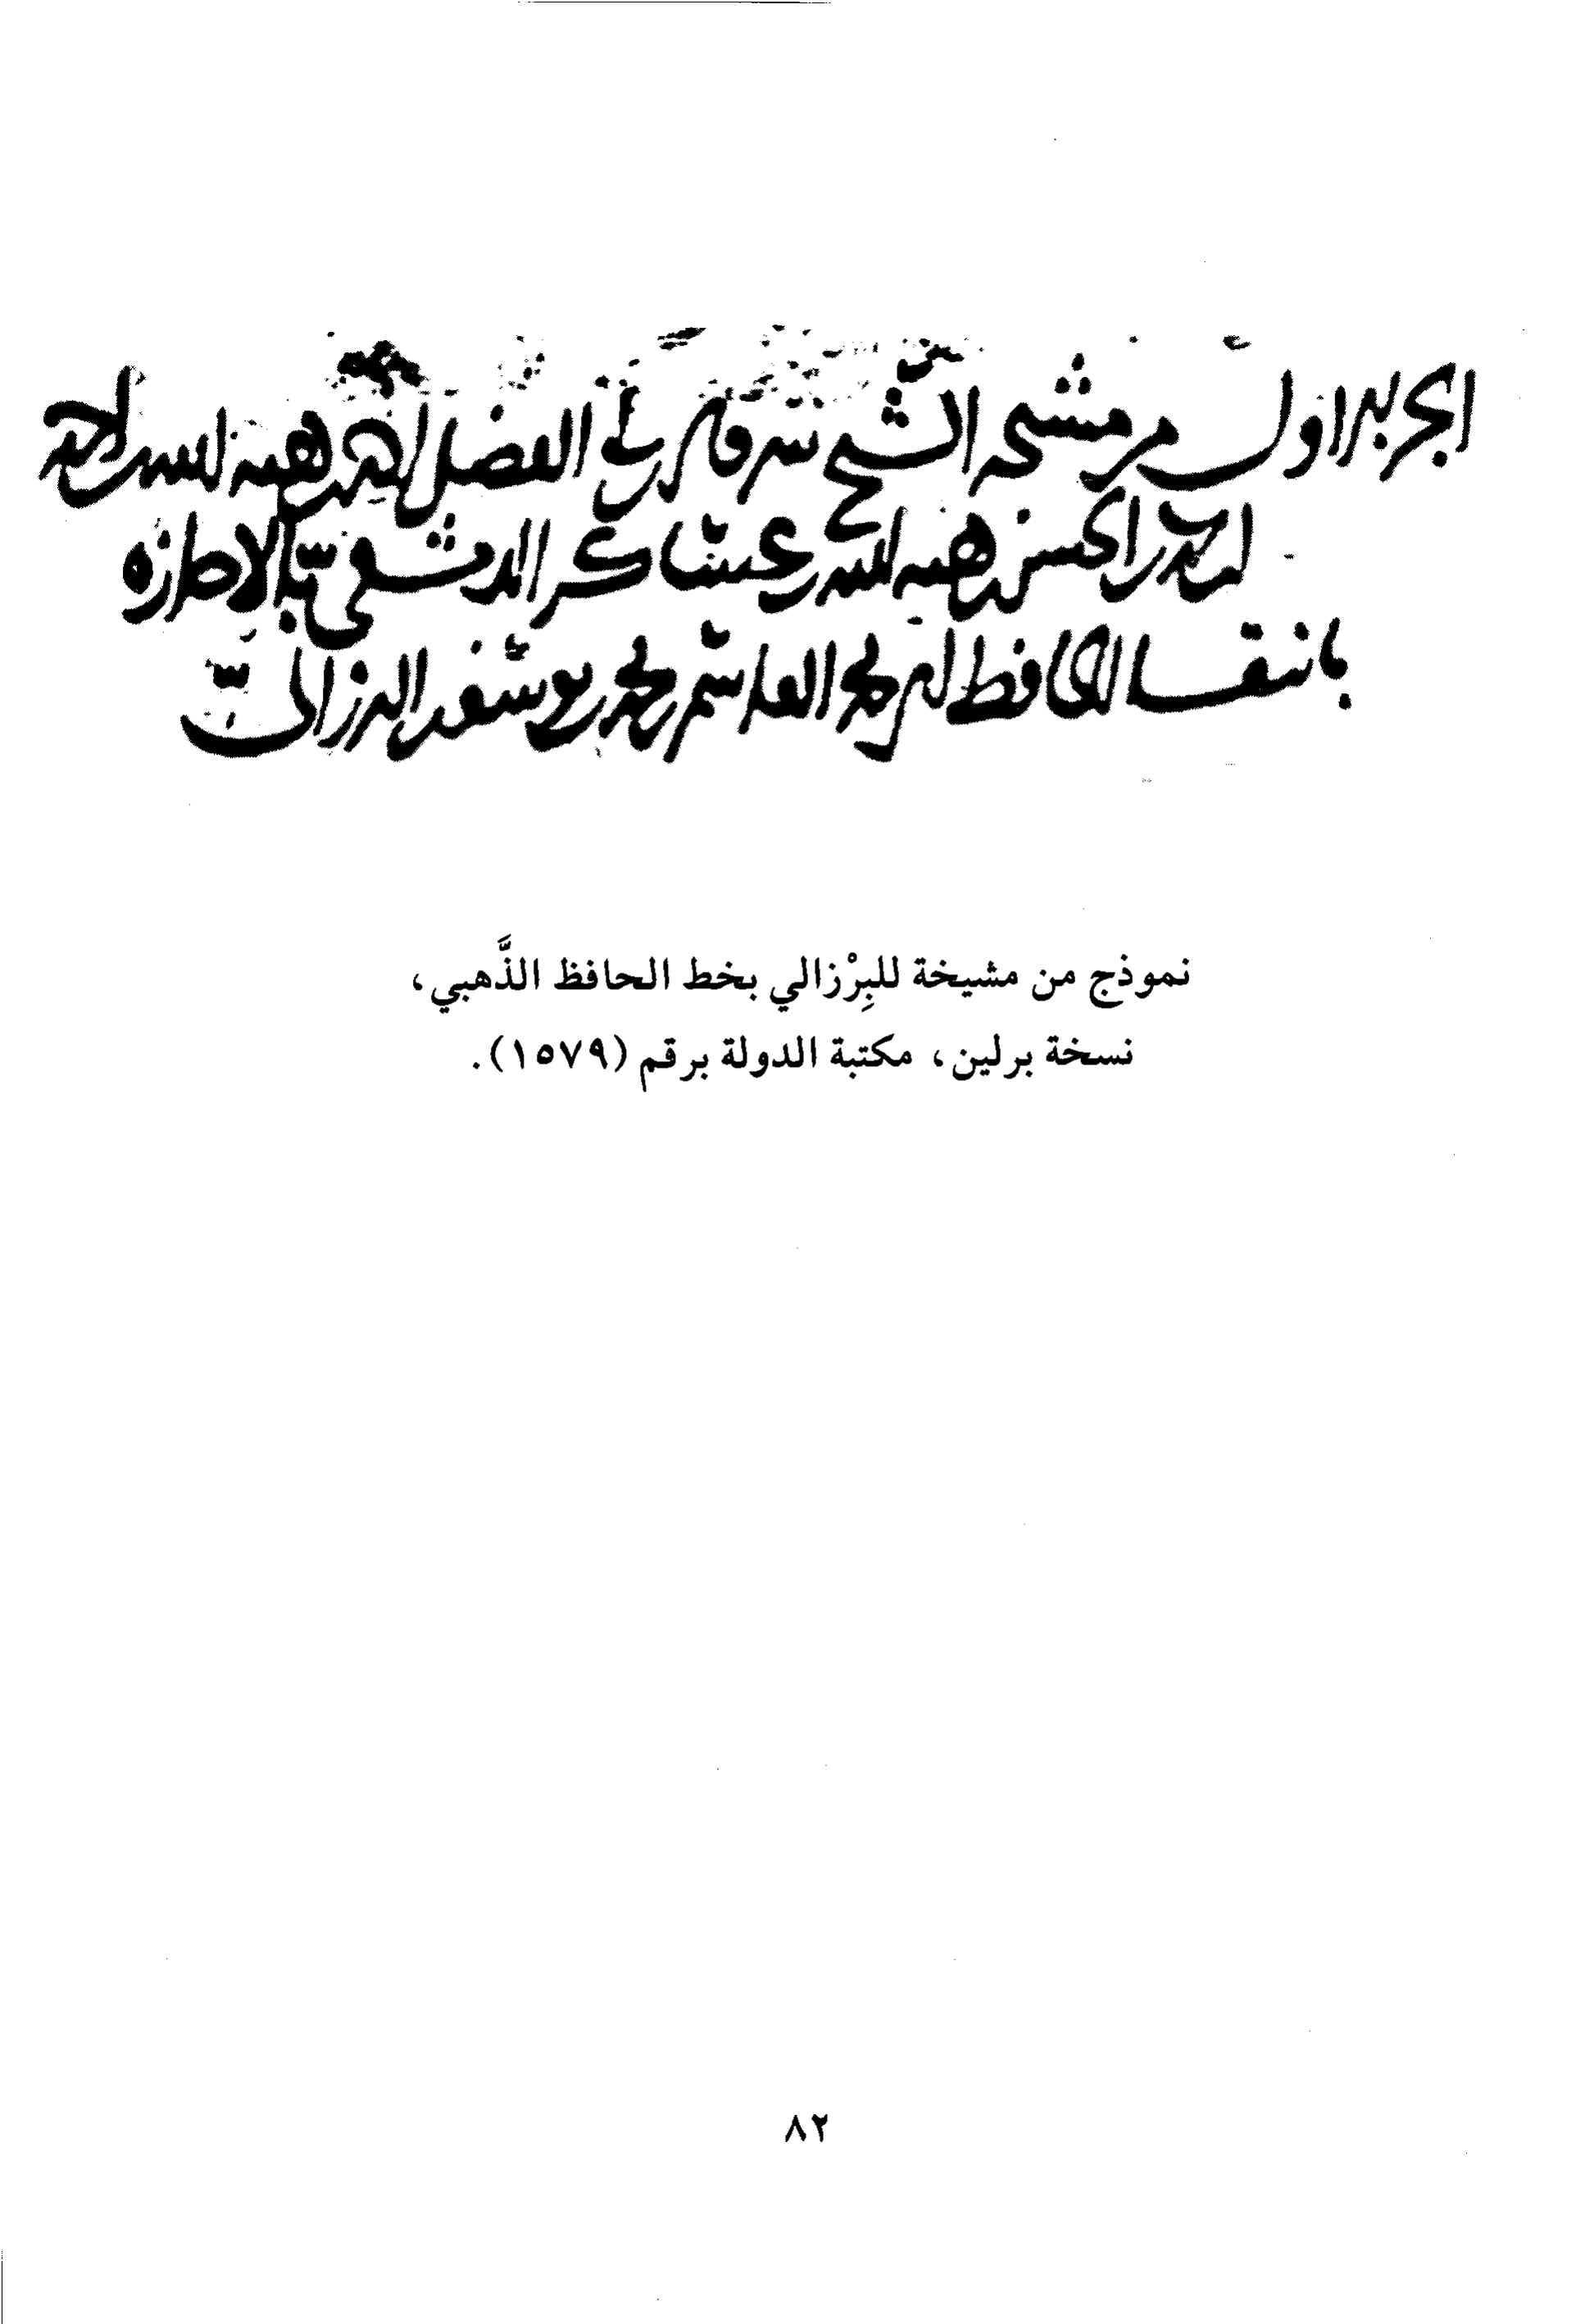 الجزء الاول من مشيخة الشيخ شرف الدين ابي الفضل احمد بن هبة الله بن احمد
بن محمد بن الحسن بن هبة الله بن عساكر الدمشقي
بانتقا الحافظ القاسم بن محمد بن يوسف البرزالي
نموذج من مشيخة للبِرْزالي بخط الحافظ الذَّهبي،
نسخة برلين، مكتبة الدولة برقم (١٥٧٩).
٨٢